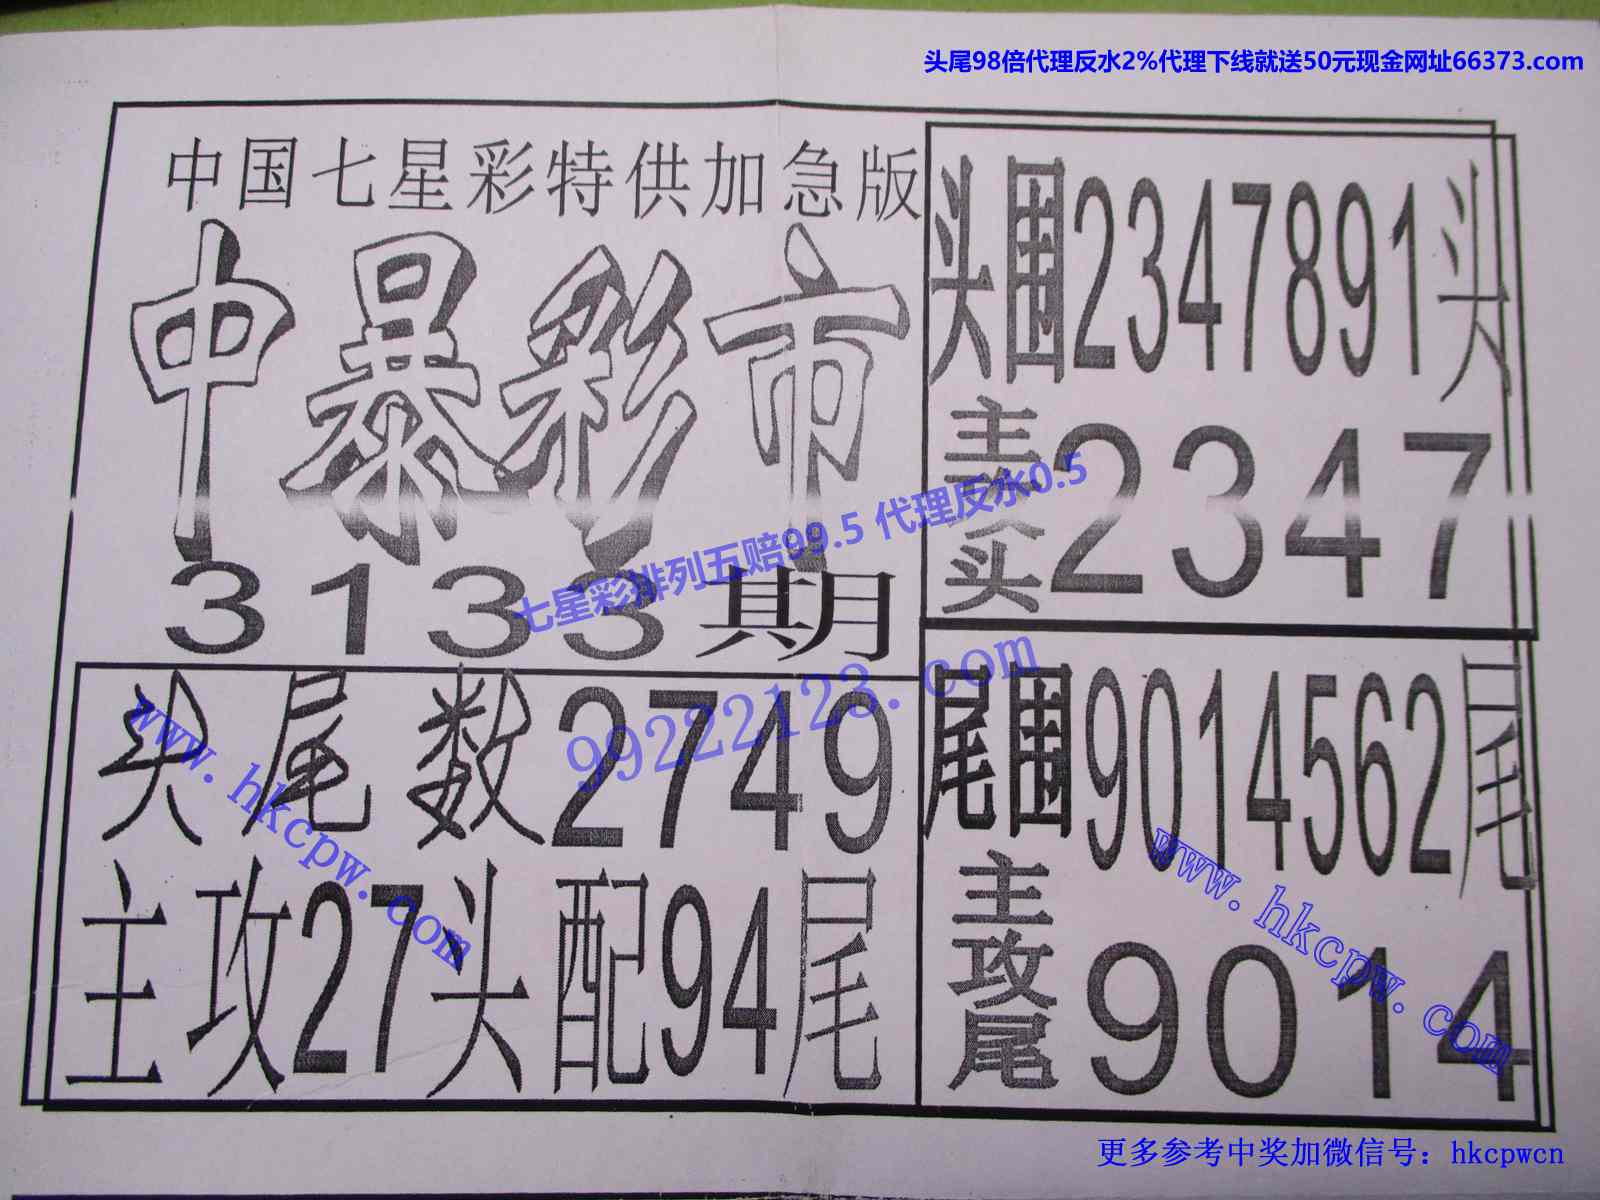 头尾98倍代理反水2%代理下线就送50元现金网址66373.com
中国七星彩特供加急版
中暴彩市
3133期
头围2347891头
主攻头2347
七星彩排列五赔99.5 代理反水0.5
99222123.com
头尾数2749
主攻27头配94尾
www.hkcpw.com
尾围9014562尾
主攻尾9014
www.hkcpw.com
更多参考中奖加微信号：hkcpwcn